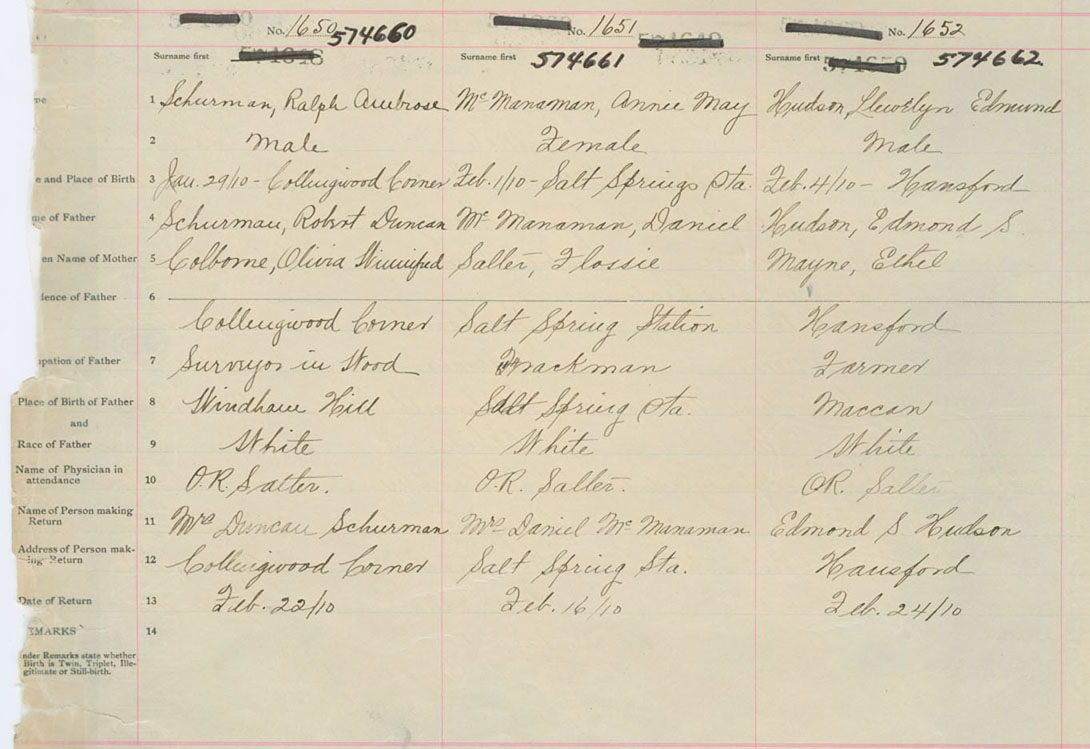 No. 1650 574660 No. 1651 No. 1652
Surname first Surname first 574661 Surname first 574662
1 Schurman, Ralph Ambrose McManaman, Annie May Hudson, Llewelyn Edmund
2 Male Female Male
e and Place of Birth 3 Jan. 29/10 - Collingwood Corner Feb. 1/10 - Salt Springs Sta. Feb. 4/10 - Hansford
me of Father 4 Schurman, Robert Duncan McManaman, Daniel Hudson, Edmond S.
en Name of Mother 5 Colborne, Olivia Winnifred Salter, Flossie Mayne, Ethel
dence of Father 6
Collingwood Corner Salt Spring Station Hansford
upation of Father 7 Surveyor in Wood Trackman Farmer
Place of Birth of Father 8 Windham Hill Salt Spring Sta. Maccan
and
Race of Father 9 White White White
Name of Physician in
attendance 10 O.R. Salter. O.R. Salter. O.R. Salter
Name of Person making
Return 11 Mrs Duncan Schurman Mrs Daniel McManaman Edmond S Hudson
Address of Person mak-
ing Return 12 Collingwood Corner Salt Spring Sta. Hansford
Date of Return 13 Feb. 22/10 Feb. 16/10 Feb. 24/10
EMARKS 14
nder Remarks state whether
Birth is Twin, Triplet, Ille-
gitimate or Still-birth.